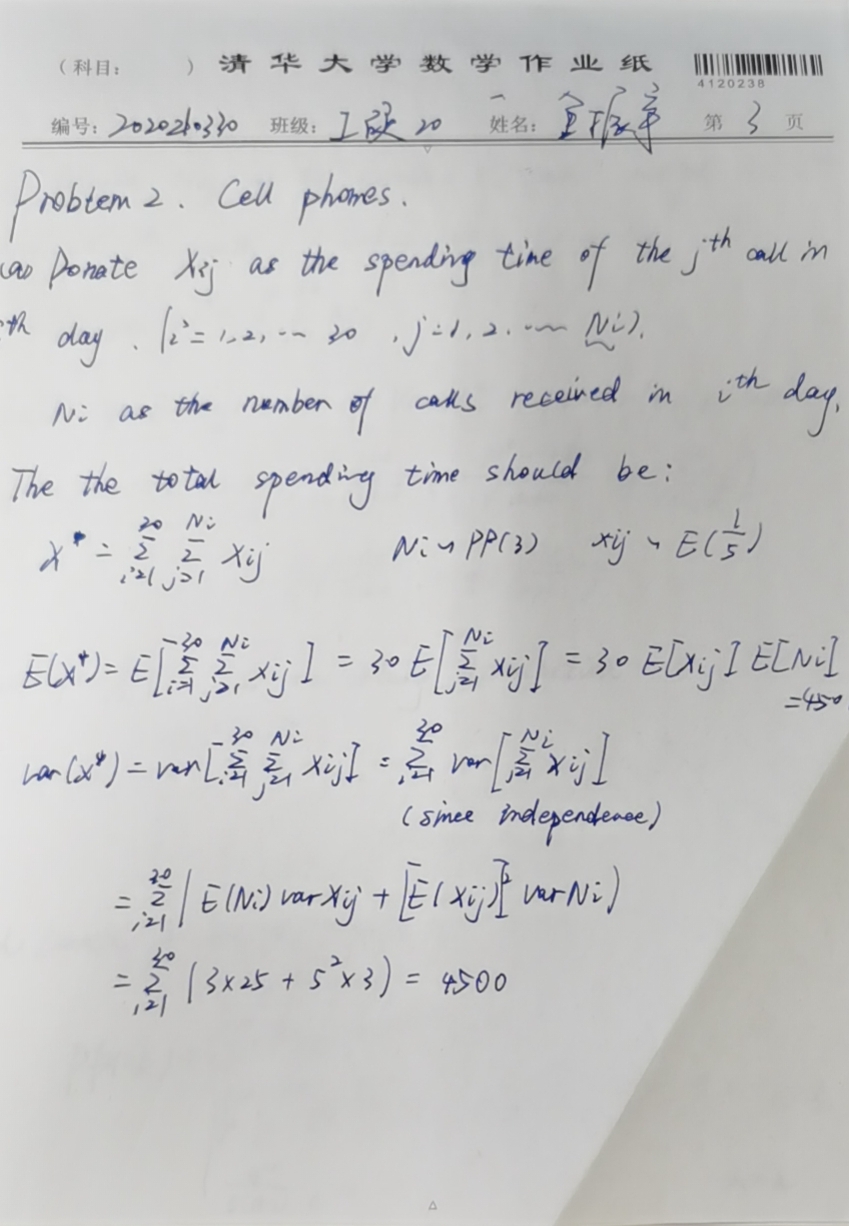 (科目: ) 清华大学数学作业纸
4120238
编号: 班级: 工 20 姓名: 第 3 页
Problem 2. Cell phones.
(a) Donate Xij as the spending time of the j^th call in
ith day. (i = 1, 2, ... 30, j = 1, 2, ... Ni).
Ni as the number of calls received in i^th day.
The the total spending time should be:
X* = \sum_{i=1}^{30} \sum_{j=1}^{Ni} Xij Ni ~ PP(3) Xij ~ E(1/5)
E(X*) = E[\sum_{i=1}^{30} \sum_{j=1}^{Ni} Xij] = 30 E[\sum_{j=1}^{Ni} Xij] = 30 E[Xij] E[Ni]
= 450
var(X*) = var[\sum_{i=1}^{30} \sum_{j=1}^{Ni} Xij] = \sum_{i=1}^{30} var[\sum_{j=1}^{Ni} Xij]
(since independence)
= \sum_{i=1}^{30} (E(Ni) var Xij + [E(Xij)]^2 var Ni)
= \sum_{i=1}^{30} (3×25 + 5^2×3) = 4500